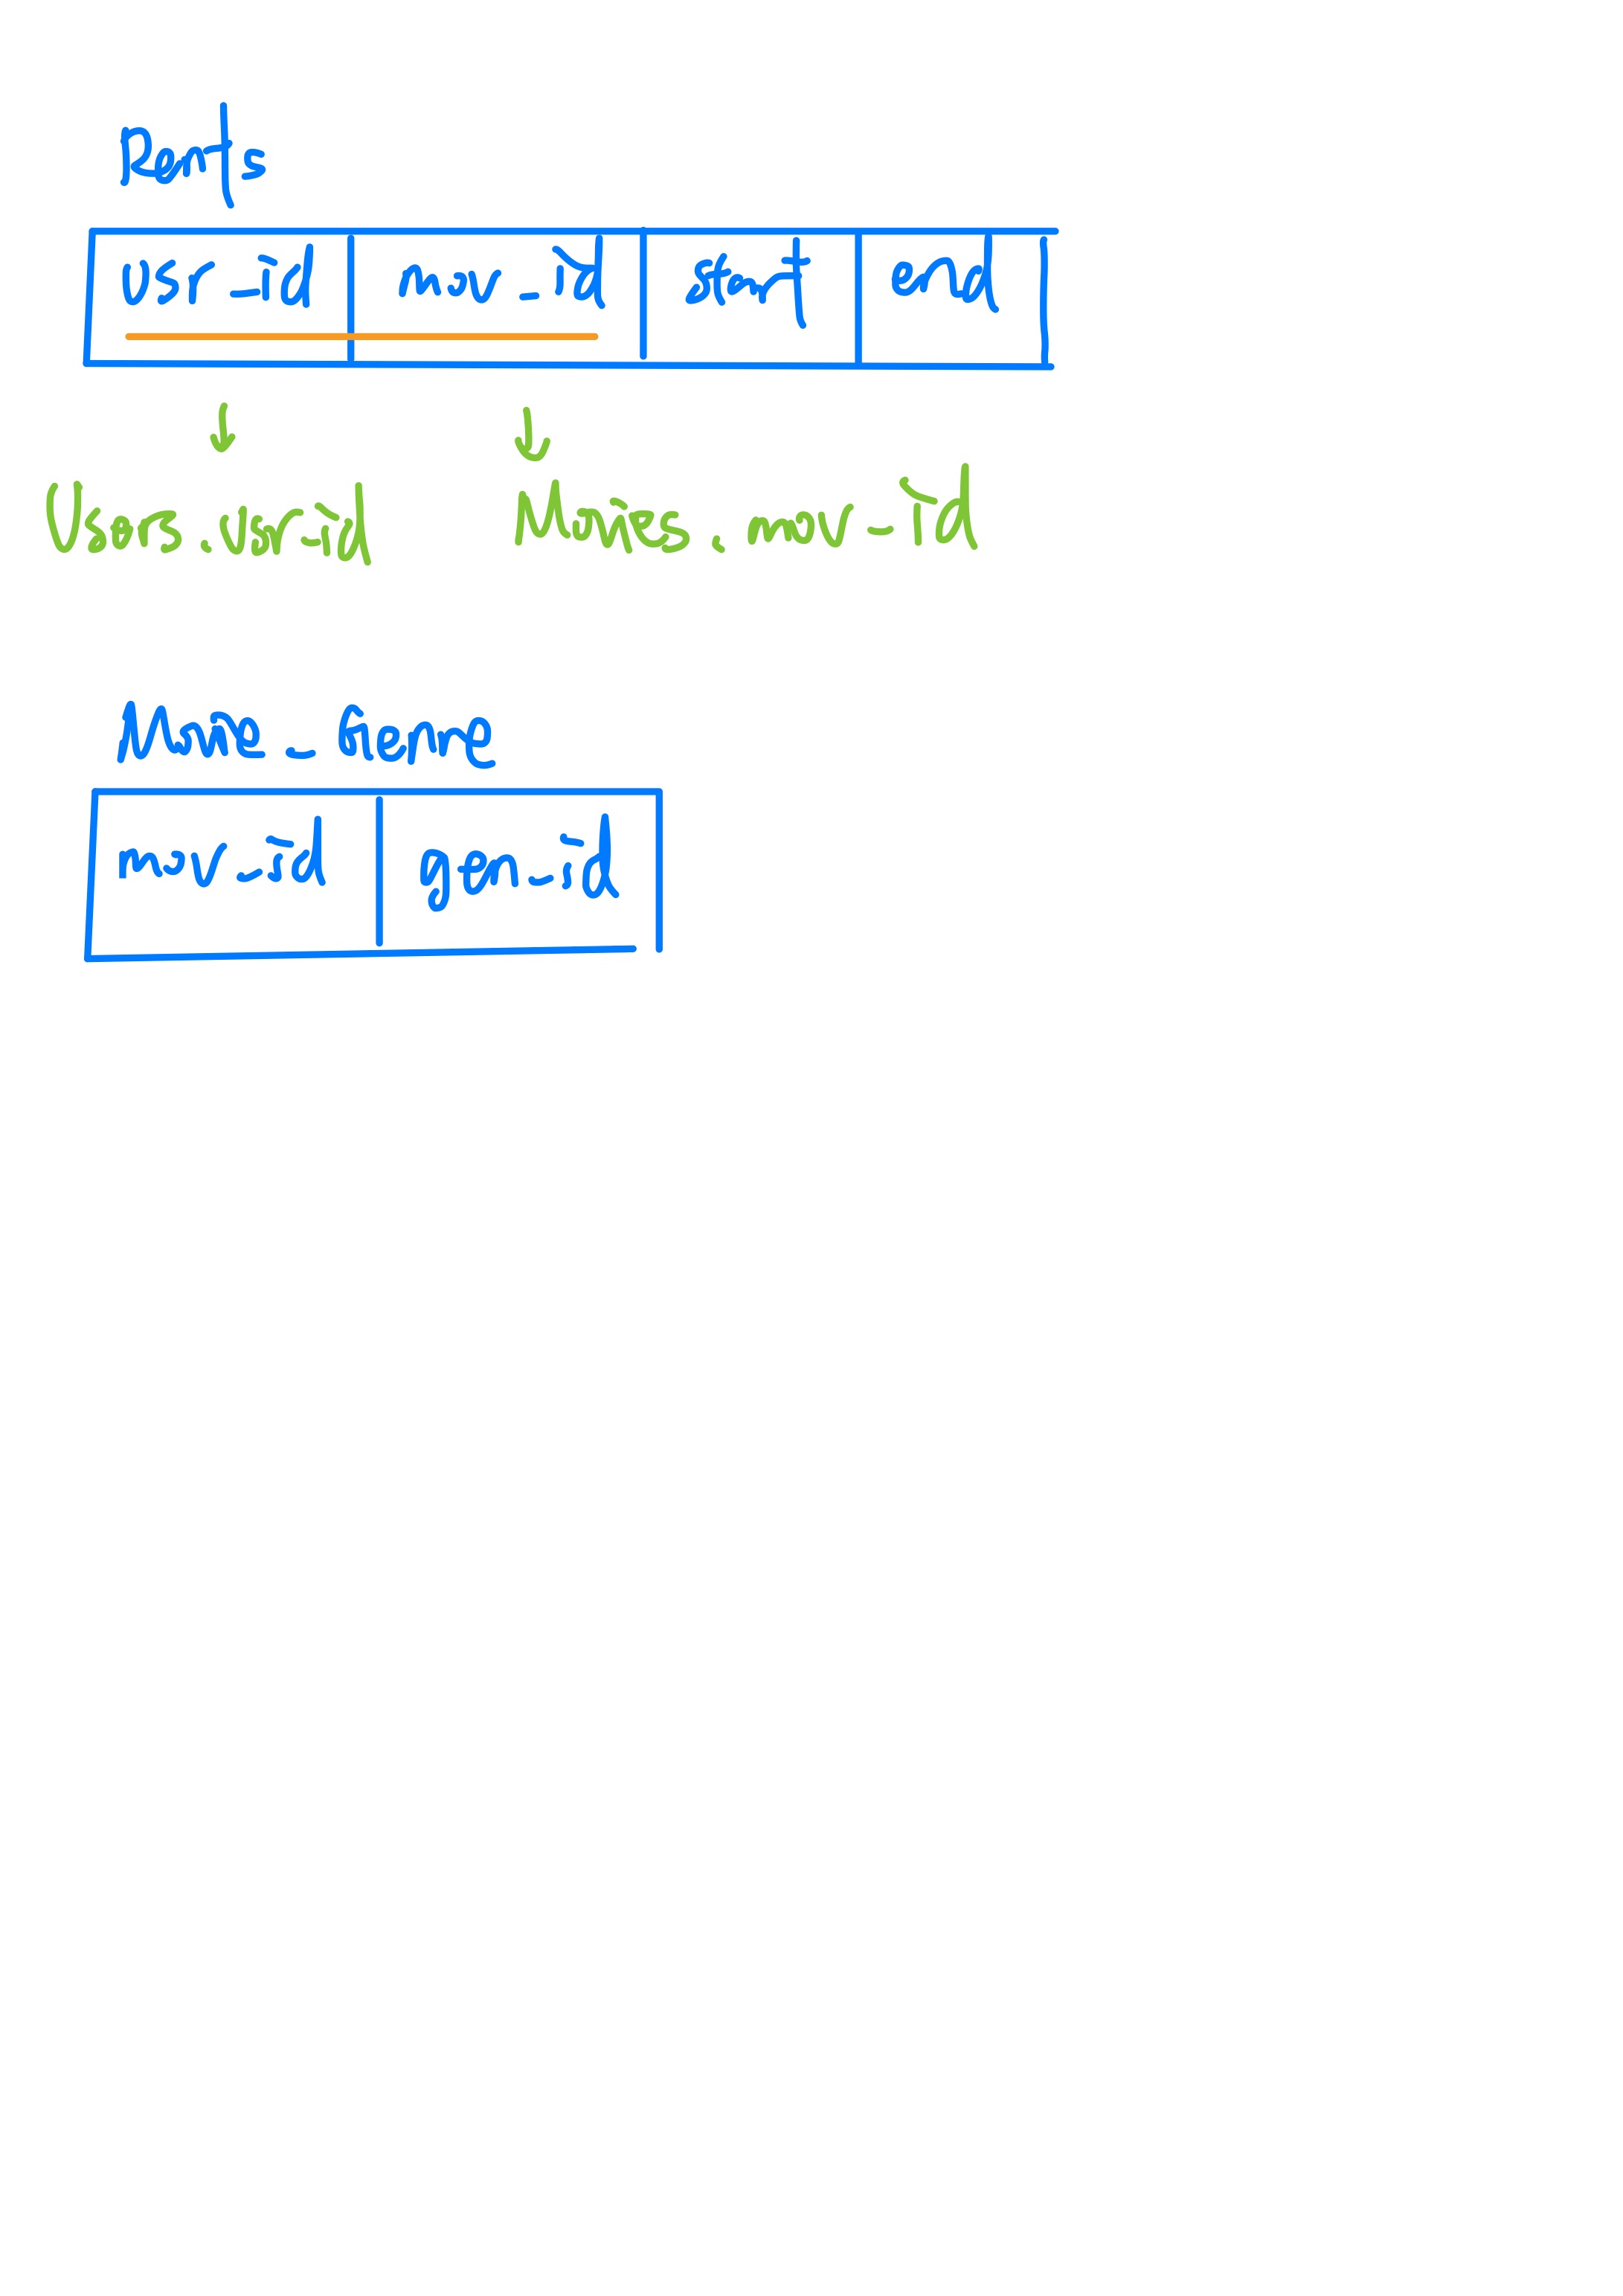 Rents
usr_id mov_id start end
Users.usr_id Movies.mov_id
Movie_Genre
mov_id gen_id